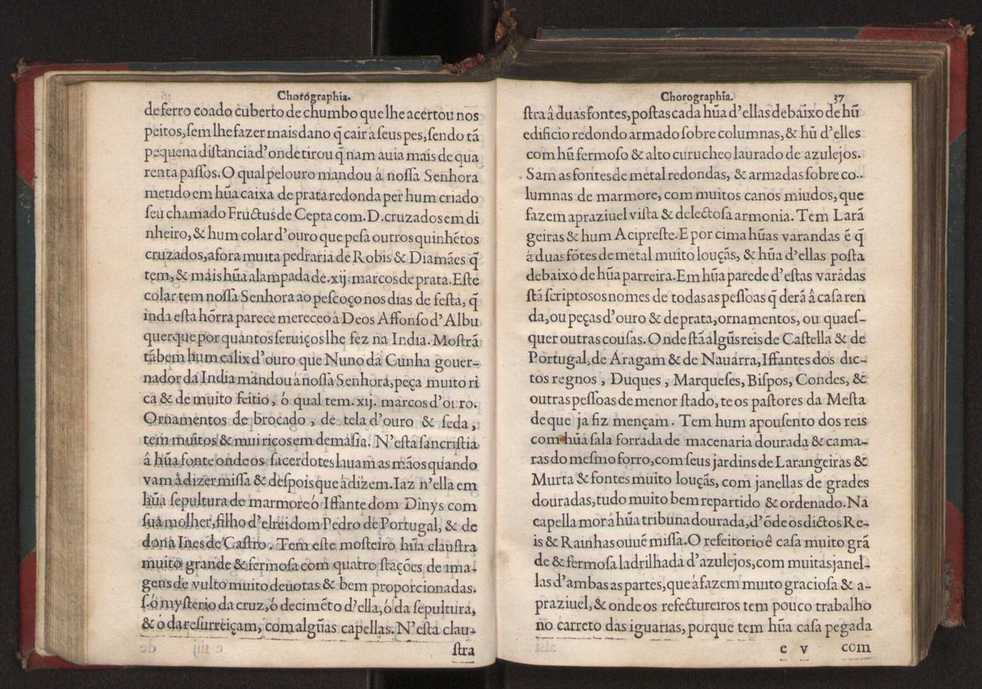 Chorographia.
de ferro coado cuberto de chumbo que lhe acertou nos
peitos, sem lhe fazer mais dano q̃ cair a seus pes, sendo tã
pequena distancia d'onde tirou q̃ nam auia mais de qua
renta passos. O qual pelouro mandou â nossa Senhora
metido em hũa caixa de prata redonda per hum criado
seu chamado Fructus de Cepta com. D. cruzados em di
nheiro, & hum colar d'ouro que pesa outros quinhẽtos
cruzados, afora muita pedraria de Robis & Diamães q̃
tem, & mais hũa alampada de .xij. marcos de prata. Este
colar tem nossa Senhora ao pescoço nos dias de festa, q̃
inda esta hõrra parece mereceo à Deos Affonso d'Albu
querque por quantos seruiços lhe fez na India. Mostrã
tãbem hum calix d'ouro que Nuno da Cunha gouer-
nador da India mandou â nossa Senhora, peça muito ri
ca & de muito feitio, ó qual tem .xij. marcos d'ouro.
Ornamentos de brocado, de tela d'ouro & seda,
tem muitos & mui ricos em demasia. N'esta sancristia
â hũa fonte onde os sacerdotes lauam as mãos quando
vam â dizer missa & despois que â dizem. Iaz n'ella em
hũa sepultura de marmore ò Iffante dom Dinys com
sua molher, filho d'elrei dom Pedro de Portugal, & de
dona Ines de Castro. Tem este mosteiro hũa claustra
muito grande & fermosa com quatro stações de ima-
gens de vulto muito deuotas & bem proporcionadas.
s. ó mysterio da cruz, ó decimẽto d'ella, ó da sepultura,
& o da resurreiçam, com algũas capellas. N'esta clau-
stra
Chorographia. 37
stra â duas fontes, postas cada hũa d'ellas debaixo de hũ
edificio redondo armado sobre columnas, & hũ d'elles
com hũ fermoso & alto curucheo laurado de azulejos.
Sam as fontes de metal redondas, & armadas sobre co-
lumnas de marmore, com muitos canos miudos, que
fazem apraziuel vista & delectosa armonia. Tem Larã
geiras & hum Acipreste. E por cima hũas varandas ẽ q̃
â duas fõtes de metal muito louçãs, & hũa d'ellas posta
debaixo de hũa parreira. Em hũa parede d'estas varãdas
stã scriptos os nomes de todas as pessoas q̃ derã â casa ren
da, ou peças d'ouro & de prata, ornamentos, ou quaes-
quer outras cousas. Onde stã algũs reis de Castella & de
Portugal, de Aragam & de Nauârra, Iffantes dos dic-
tos regnos, Duques, Marqueses, Bispos, Condes, &
outras pessoas de menor stado, te os pastores da Mesta
de que ja fiz mençam. Tem hum apousento dos reis
com hũa sala forrada de macenaria dourada & cama-
ras do mesmo forro, com seus jardins de Larangeiras &
Murta & fontes muito louçãs, com janellas de grades
douradas, tudo muito bem repartido & ordenado. Na
capella mor â hũa tribuna dourada, d'õde os dictos Re-
is & Rainhas ouuẽ missa. O refeitorio ê casa muito grã
de & fermosa ladrilhada d'azulejos, com muitas janel-
las d'ambas as partes, que â fazem muito graciosa & a-
praziuel, & onde os refectureiros tem pouco trabalho
no carreto das iguarias, porque tem hũa casa pegada
e v com